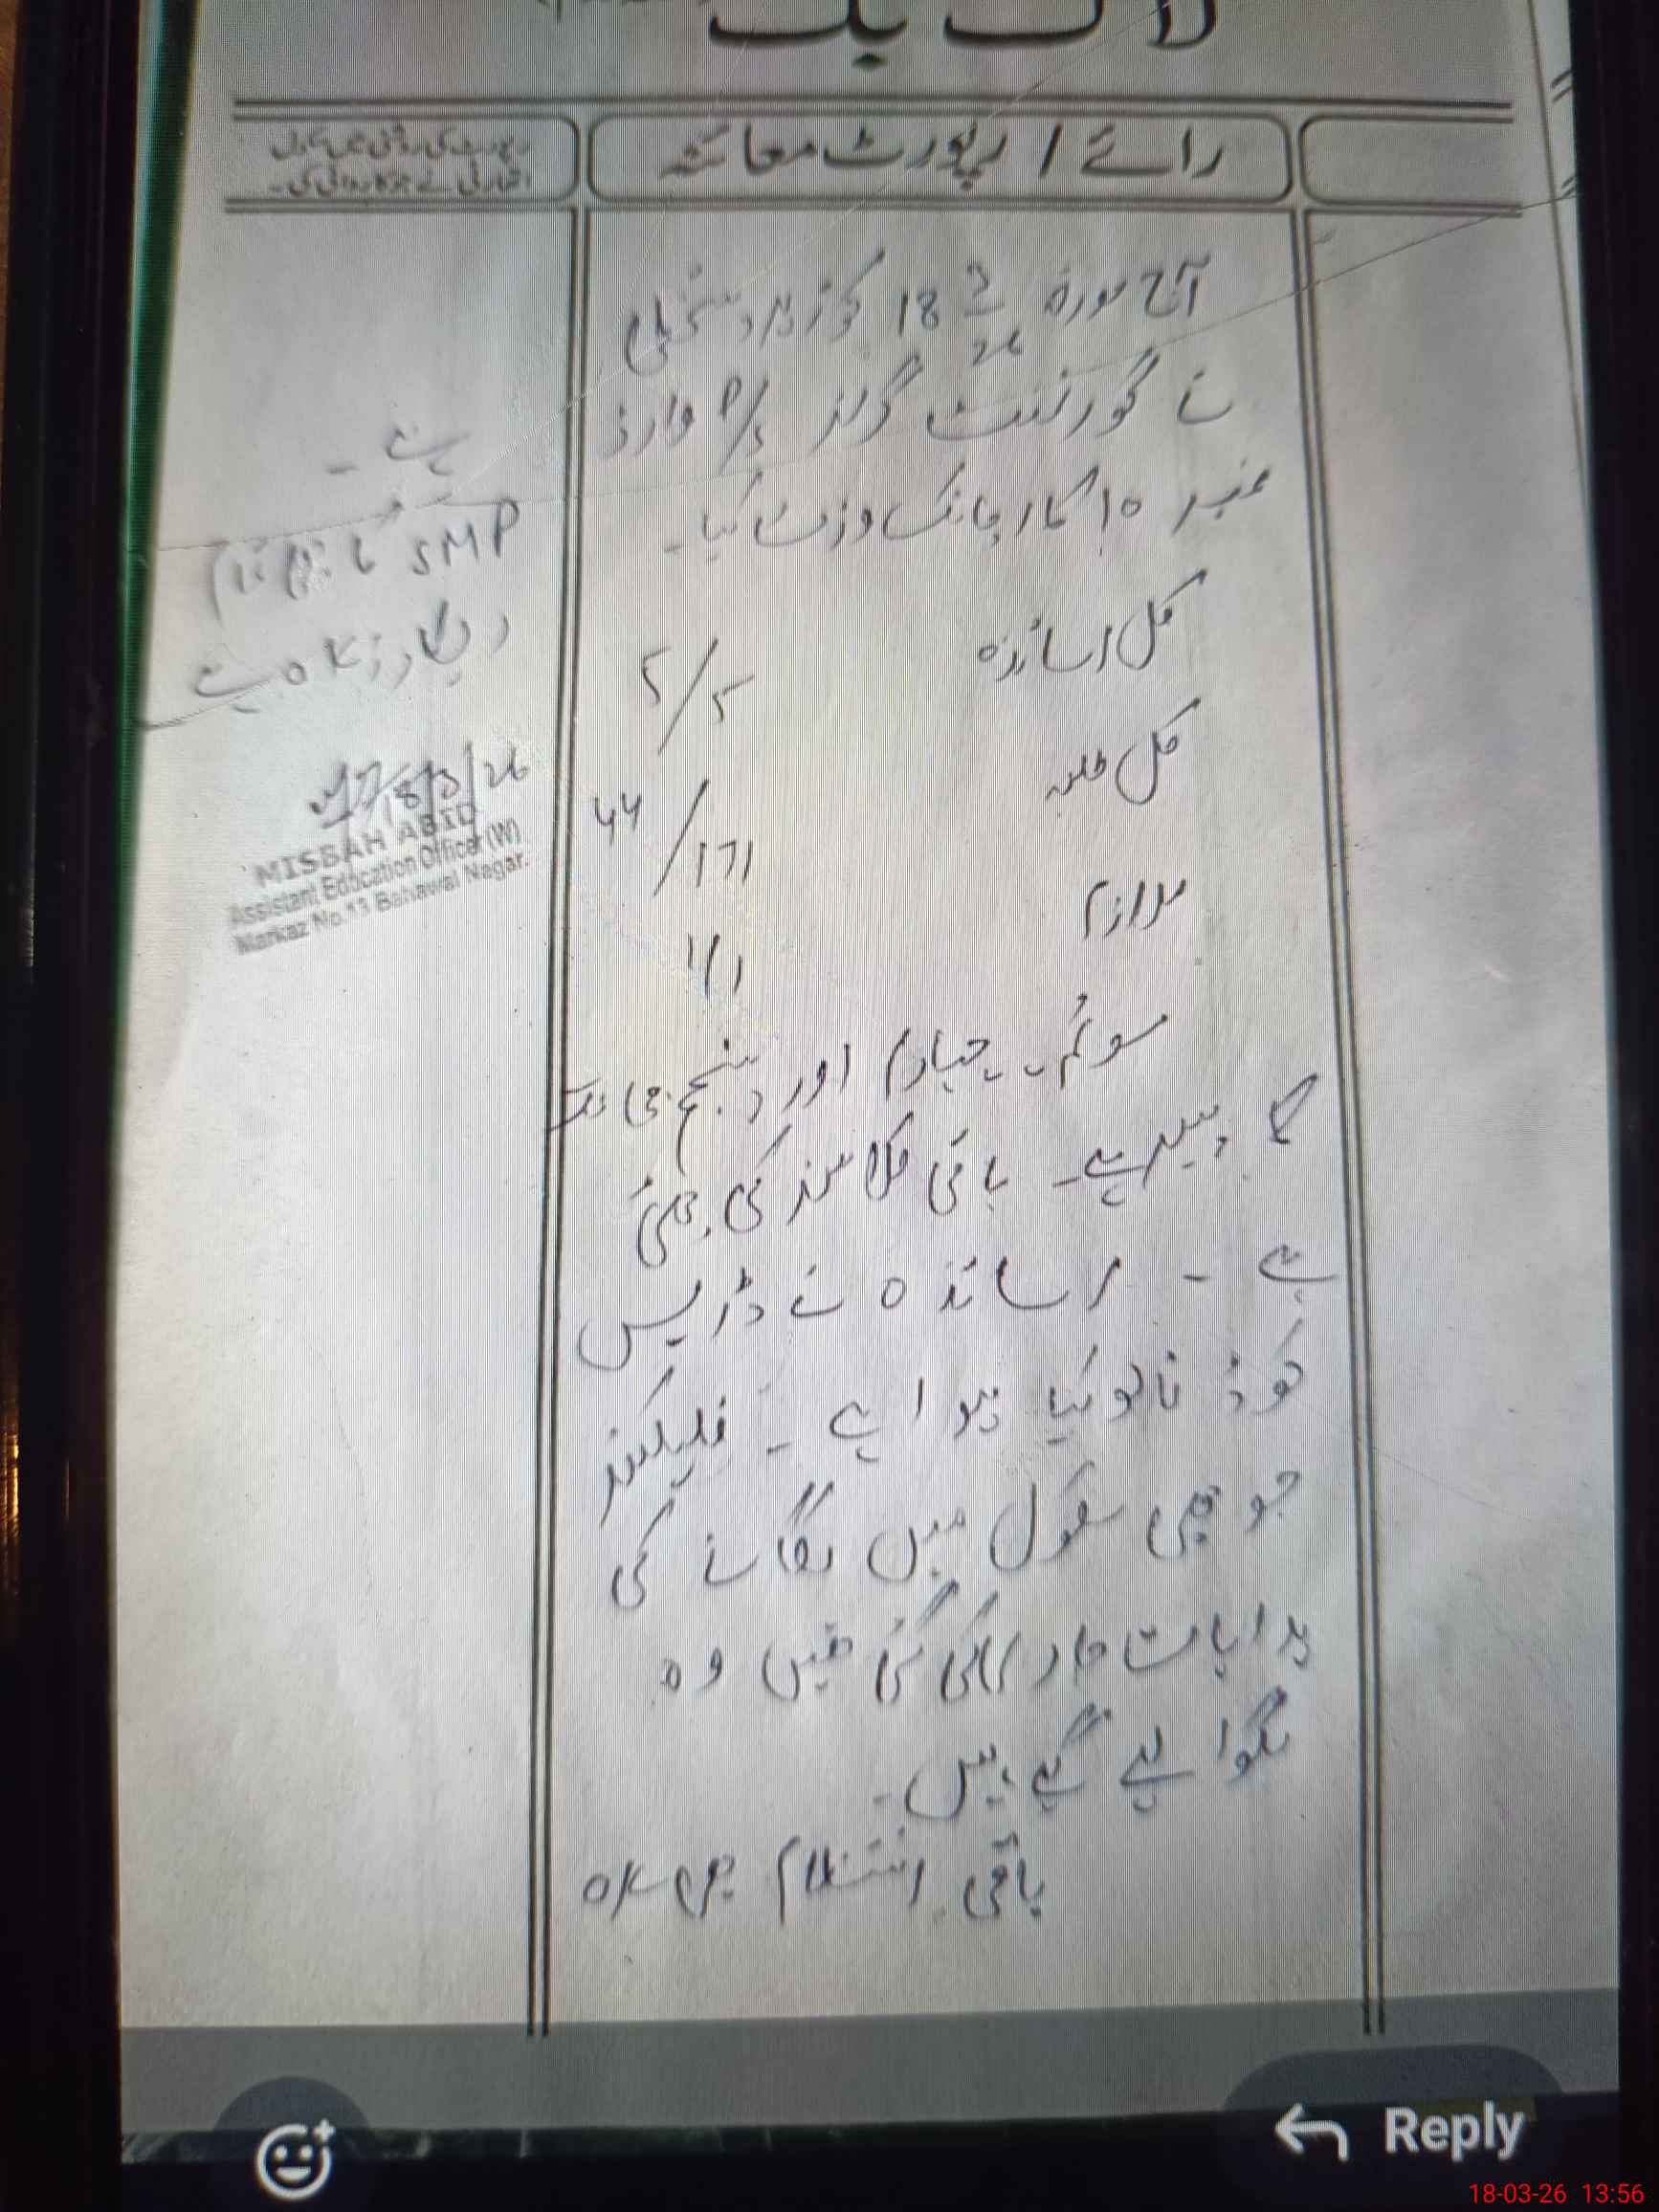 لاگ بک
رائے / رپورٹ معائنہ
رپورٹ کی روشنی میں مجاز
اتھارٹی نے جو کارروائی کی۔
آج مورخہ 18 3 26 کو زیر دستخطی
نے گورنمنٹ گرلز P/S وارڈ
نمبر 10 کا اچانک وزٹ کیا۔
کل اساتذہ 5/5
کل طلبہ 44/171
ملازم 1/1
سوئم۔ چہارم اور پنجم کی
کا پیپر ہے۔ باقی کلاسز کی چھٹی
ہے - اساتذہ نے ڈریس
کوڈ فالو کیا ہوا ہے - فلیکسز
جو بھی سکول میں لگانے کی
ہدایات جاری کی گئی تھیں وہ
لگوا لیے گئے ہیں۔
باقی انتظام بھی OK
ہے -
SMP کا
ریکارڈ OK ہے
18/3/26
MISBAH ABID
Assistant Education Officer (W)
Markaz No.13 Bahawal Nagar.
Reply
18-03-26 13:56